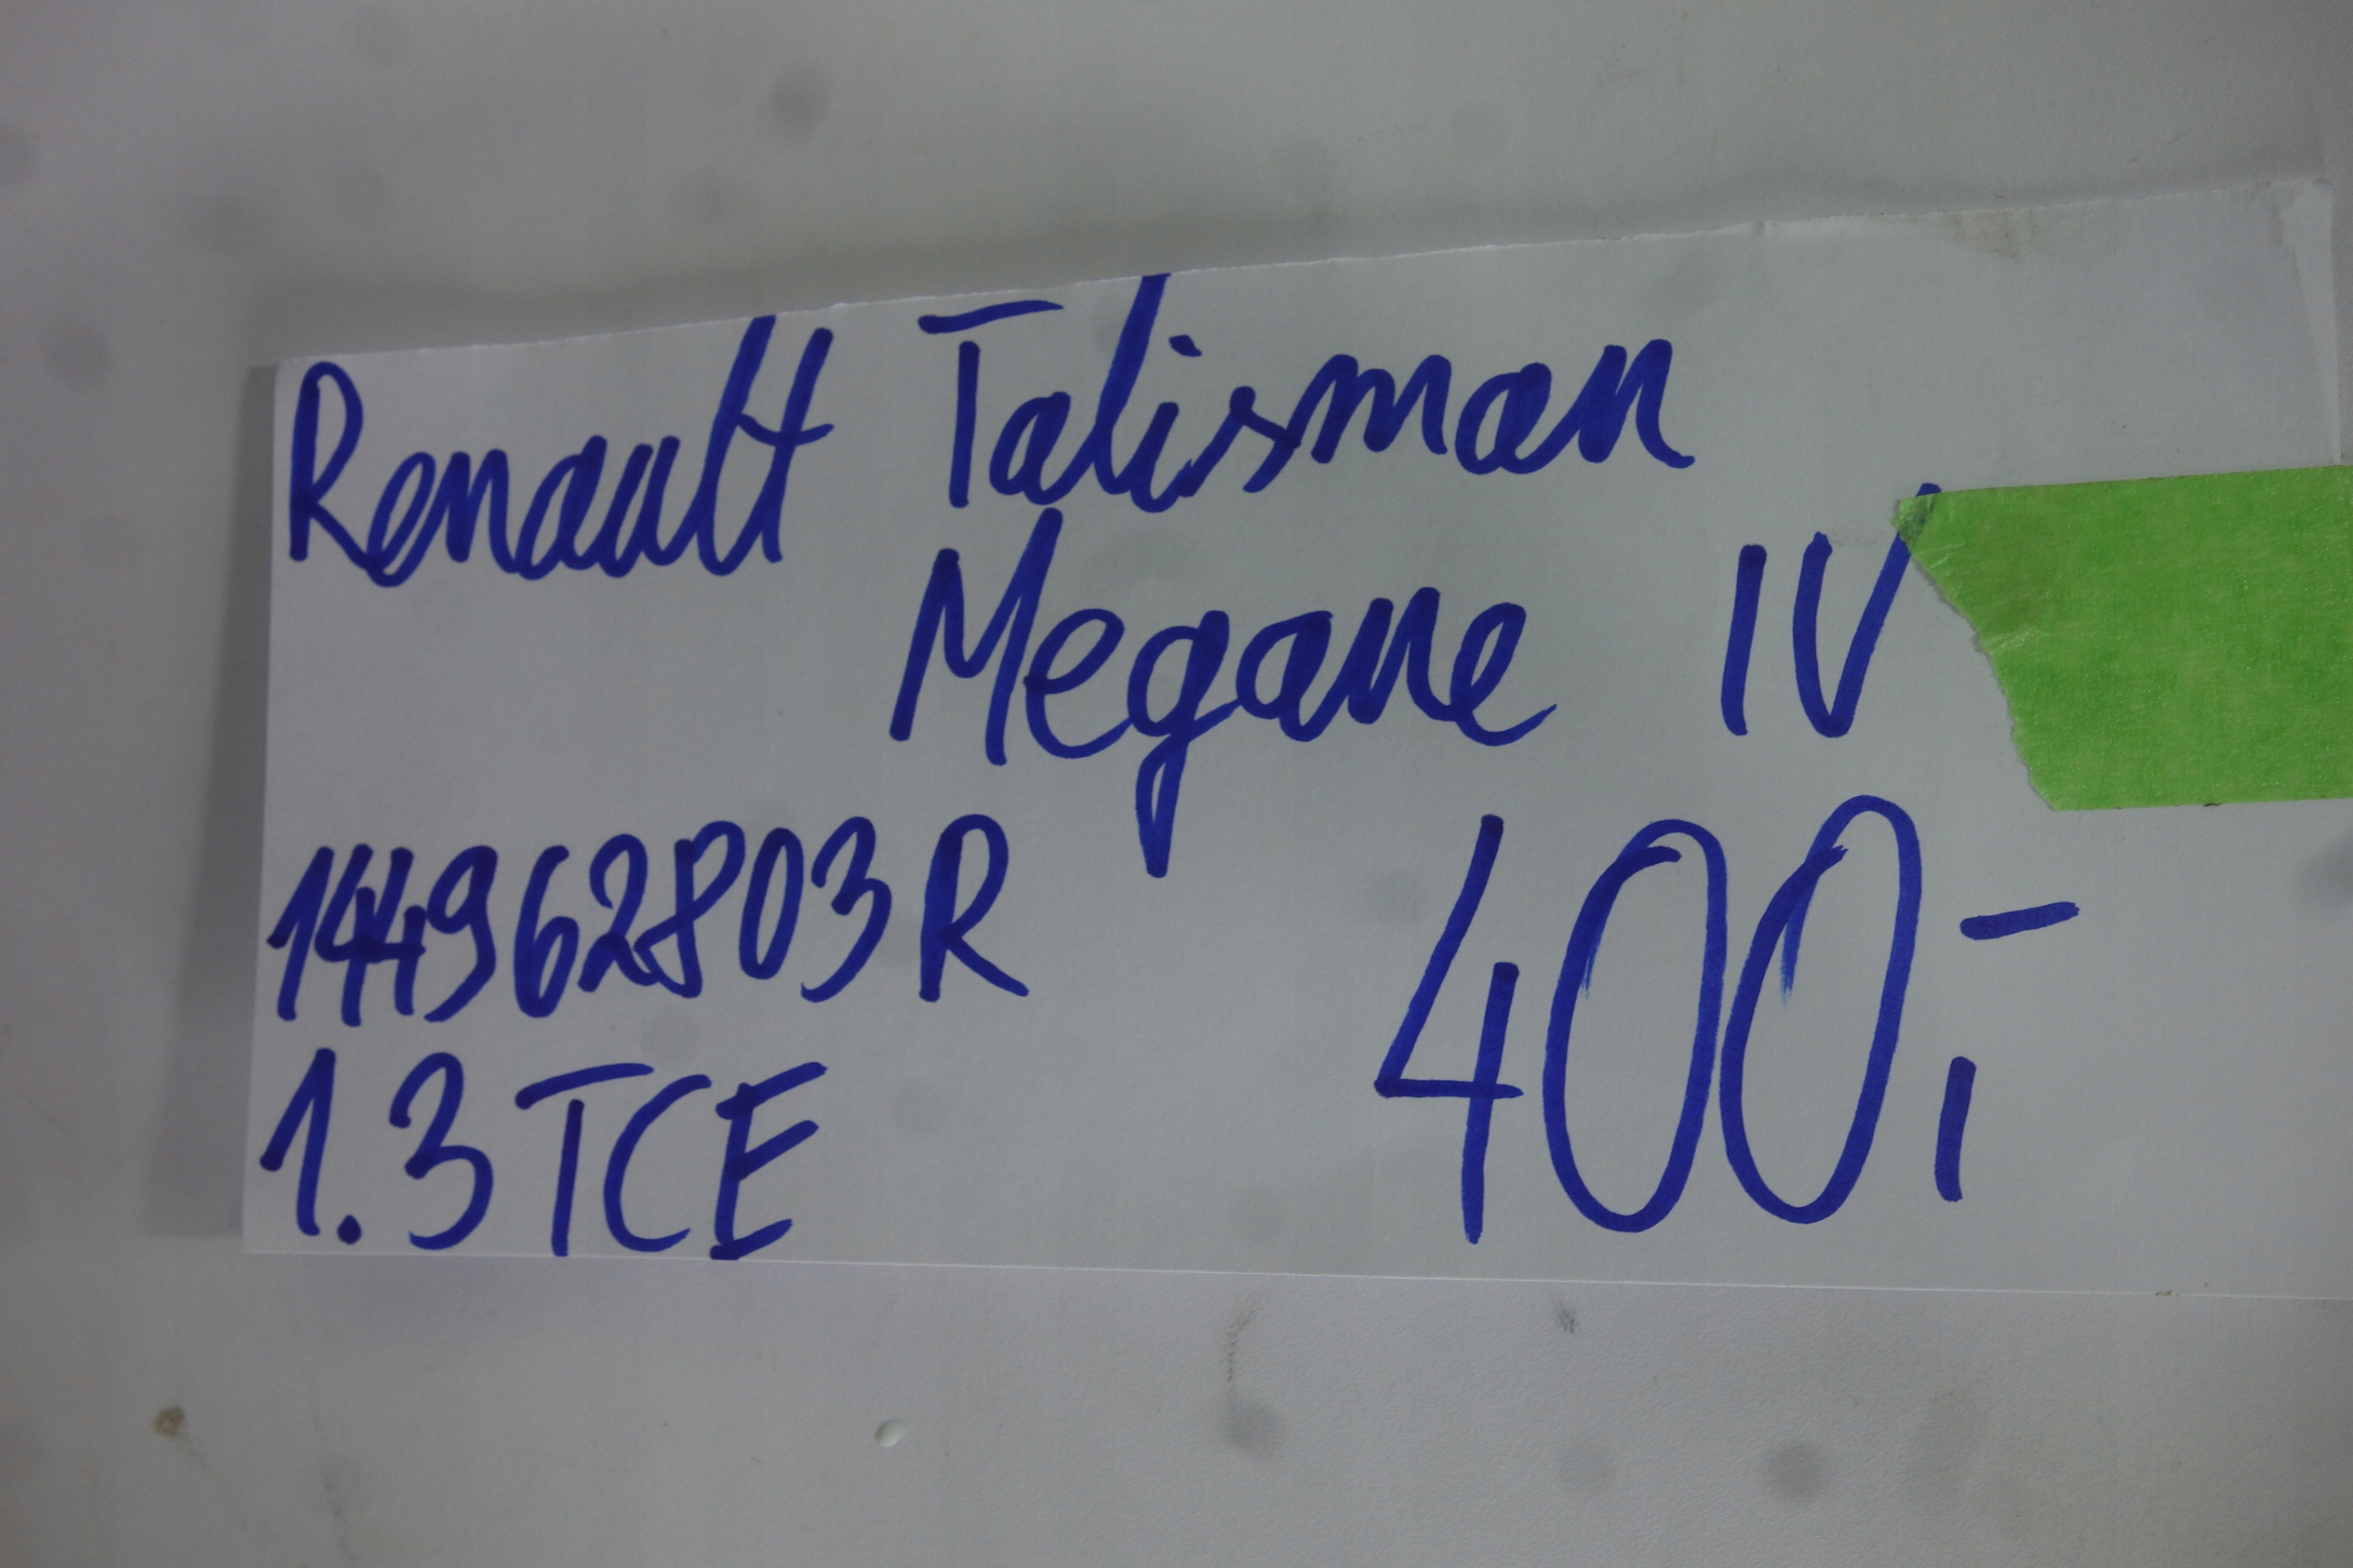 Renault Talisman
Megane IV
144962803R
1.3 TCE
400,-